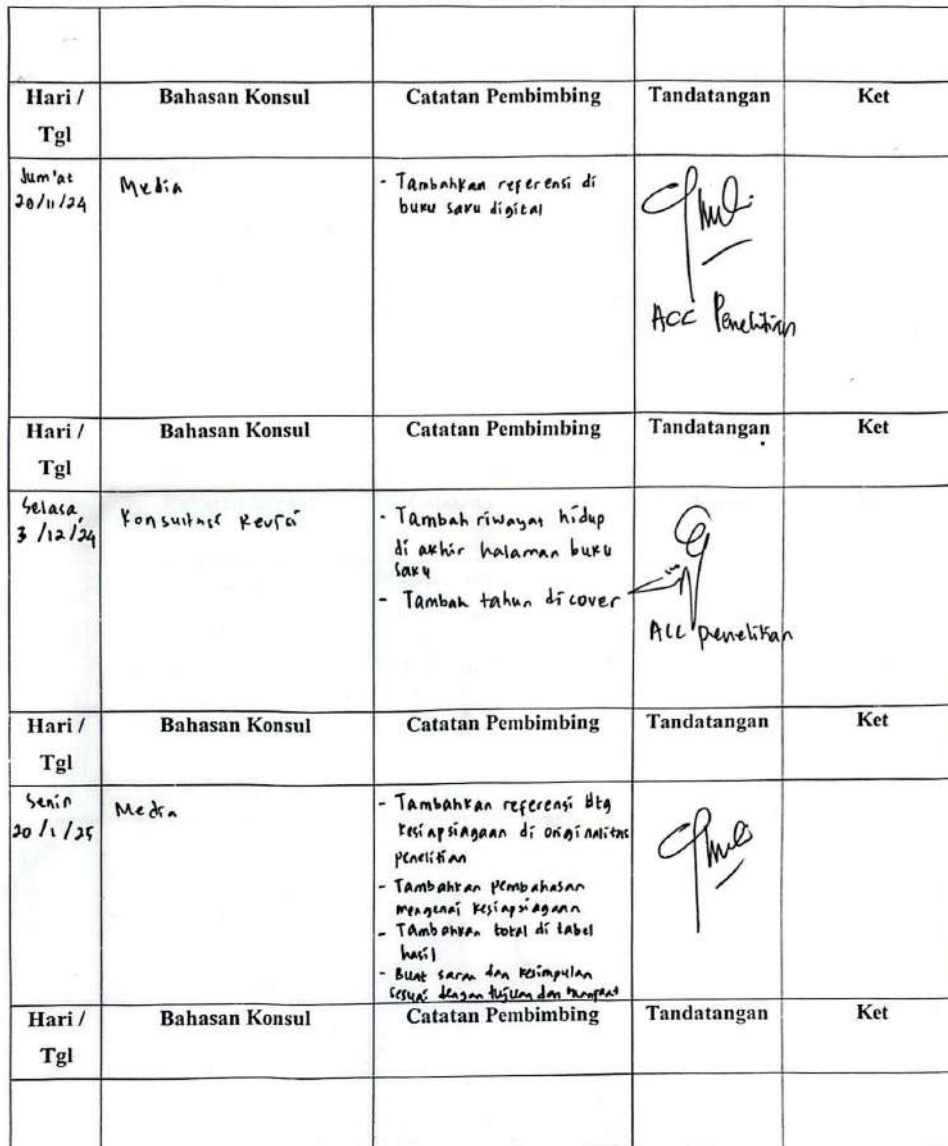 Hari / Bahasan Konsul Catatan Pembimbing Tandatangan Ket
Tgl
Jum'at Media - Tambahkan referensi di
20/11/24 buku saku digital
ACC Penelitian
Hari / Bahasan Konsul Catatan Pembimbing Tandatangan Ket
Tgl
Selasa, Konsultasi Revisi - Tambah riwayat hidup
3/12/24 di akhir halaman buku
saku
- Tambah tahun di cover
ACC penelitian
Hari / Bahasan Konsul Catatan Pembimbing Tandatangan Ket
Tgl
Senin Media - Tambahkan referensi ttg
20/1/25 kesiapsiagaan di originalitas
penelitian
- Tambahkan pembahasan
mengenai kesiapsiagaan
- Tambahkan total di tabel
hasil
- Buat saran dan kesimpulan
sesuai dengan tujuan dan manfaat
Hari / Bahasan Konsul Catatan Pembimbing Tandatangan Ket
Tgl